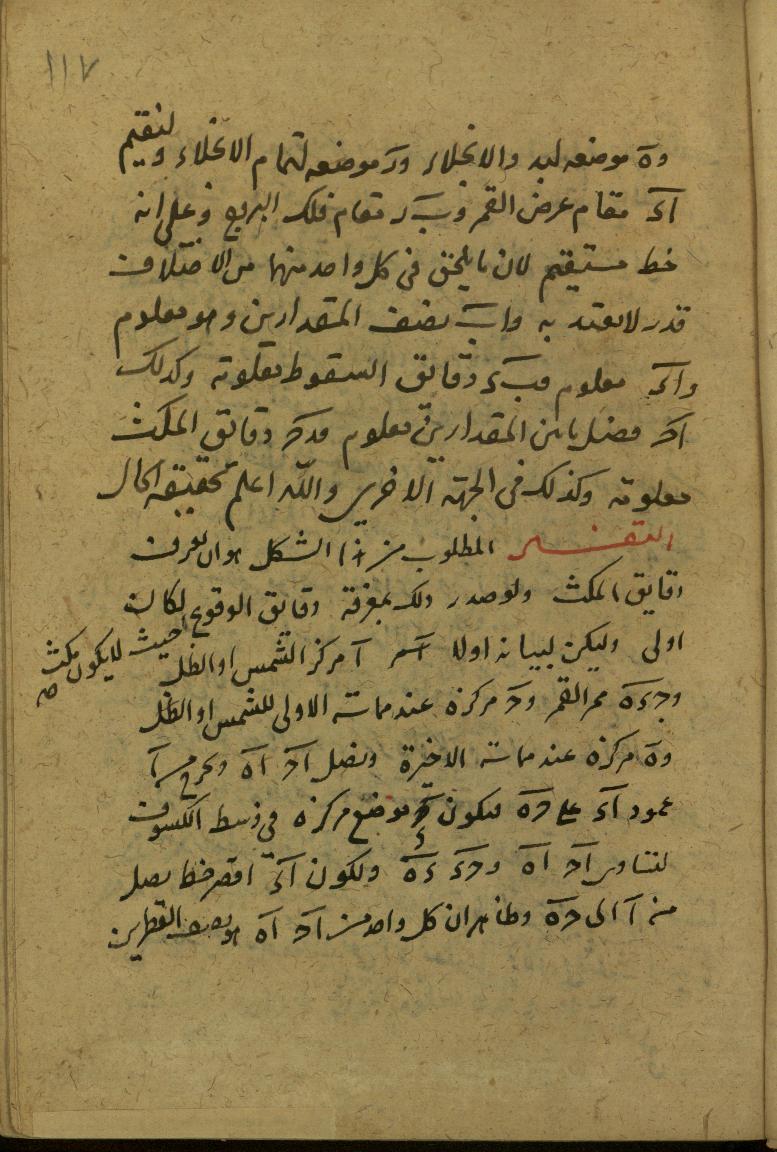 ١١٧
وه موضعه لبدو الانجلاء ور موضعه لتمام الانجلاء ولنقيم
آى مقام عرض القمر وب ر مقام فلك البروج وعلى انه
خط مستقيم لان ما يلحق فى كل واحد منهما من الاختلاف
قدر لا يعتد به واب نصف المقدارين وهو معلوم
واى معلوم فب ى دقائق السقوط معلومة وكذلك
اح فضل ما بين المقدارين معلوم فدح دقائق المكث
معلومة وكذلك فى الجهة الاخرى والله اعلم بحقيقة الحال
التفسير المطلوب من هذا الشكل هو ان نعرف
دقايق المكث ولو صدر ذلك بمعرفة دقائق الوقوع لكان
اولى وليكن لبيانه اولا آ مركز الشمس او الظل
حيث لا يكون مكث صح
وح ى ه ممر القمر وح مركزه عند مماسته الاولى للشمس او الظل
وه مركزه عند مماسته الاخيرة ونصل اح اه ونخرج من آ
عمود آى على حه فيكون ى موضع مركزه فى وسط الكسوف
لتساوى اح اه وحى ىه ولكون آى اقصر خط يصل
من آ الى حه وظاهر ان كل واحد من اح اه هو نصف القطرين